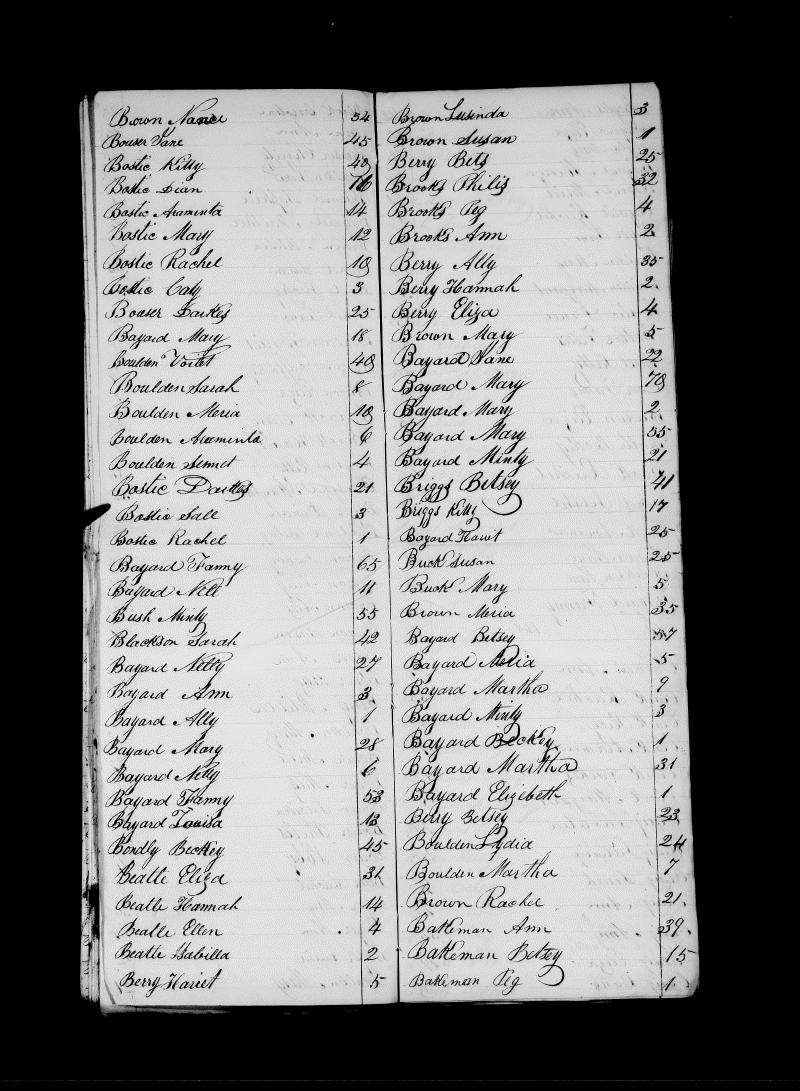 Brown Nance 54
Bouser Jane 45
Bostic Kitty 40
Bostic Dian 76
Bostic Araminta 14
Bostic Mary 12
Bostic Rachel 10
Bostic Caty 3
Bouser Darkes 25
Bayard Mary 18
Boulden Voilet 40
Boulden Sarah 8
Boulden Meria 10
Boulden Araminta 6
Boulden Semet 4
Bostic Darkes 21
Bostic Sall 3
Bostic Rachel 1
Bayard Fanny 65
Bayard Nell 11
Bush Minty 55
Blackson Sarah 42
Bayard Netty 27
Bayard Ann 3
Bayard Ally 1
Bayard Mary 28
Bayard Nelly 6
Bayard Fanny 53
Bayard Louisa 13
Bondly Beckey 45
Beatle Eliza 31
Beatle Hannah 14
Beatle Ellen 4
Beatle Isabilla 2
Berry Hariet 5
Brown Lusinda 3
Brown Susan 1
Berry Bets 25
Brooks Philis 32
Brooks Peg 4
Brooks Ann 2
Berry Ally 35
Berry Hannah 2
Berry Eliza 4
Brown Mary 5
Bayard Jane 22
Bayard Mary 70
Bayard Mary 2
Bayard Mary 55
Bayard Minty 21
Briggs Betsey 41
Briggs Kitty 17
Bayard Harit 25
Buck Susan 25
Buck Mary 5
Brown Meria 35
Bayard Betsey 57
Bayard Meria 5
Bayard Martha 9
Bayard Minty 3
Bayard Beckey 1
Bayard Martha 31
Bayard Elizebeth 1
Berry Betsey 23
Boulden Lydia 24
Boulden Martha 7
Brown Rachel 21
Bakeman Ann 39
Bakeman Betsey 15
Bakeman Peg 1